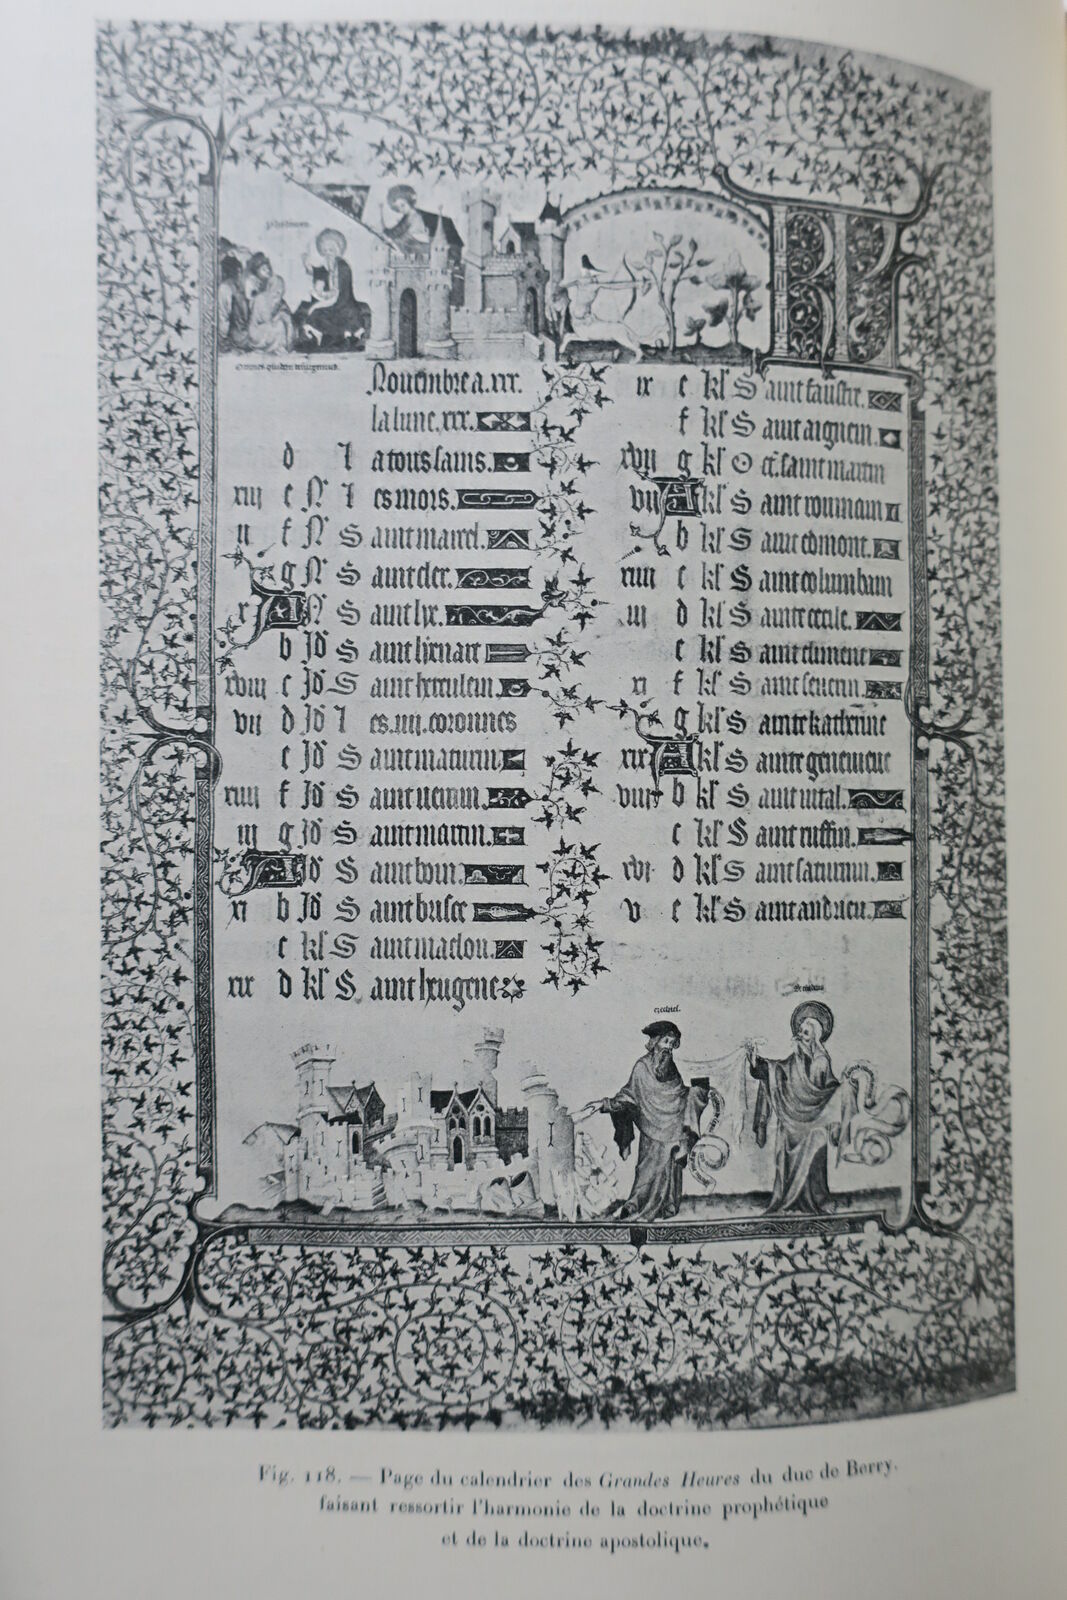 KL
Novembre a .xxx.
la lune .xxx.
d l a tous sains.
xiii e N l es mors.
ii f N S aint marcel.
g N S aint cler.
x A N S aint lye.
b Id S aint lienart
xviii c Id S aint herculein.
vii d Id l es .iiii. coronnes
e Id S aint maturin.
f Id S aint
iii g Id S aint martin.
A Id S aint
xi b Id S aint brisce
c kl S aint maclou.
xix d kl S aint
ix e kl S aint
f kl S aint aignein.
xvii g kl O ct. saint martin
vii A kl S aint
b kl S aint edmont.
xiiii c kl S aint columbam
iii d kl S ainte cecile.
e kl S aint climent
xi f kl S aint severin.
g kl S ainte katherine
xix A kl S ainte genevieve
viii b kl S aint vital.
c kl S aint ruffin.
xvi d kl S aint saturnin.
v e kl S aint andrieu.
ezechiel.
Fig. 118. — Page du calendrier des Grandes Heures du duc de Berry,
faisant ressortir l'harmonie de la doctrine prophétique
et de la doctrine apostolique.